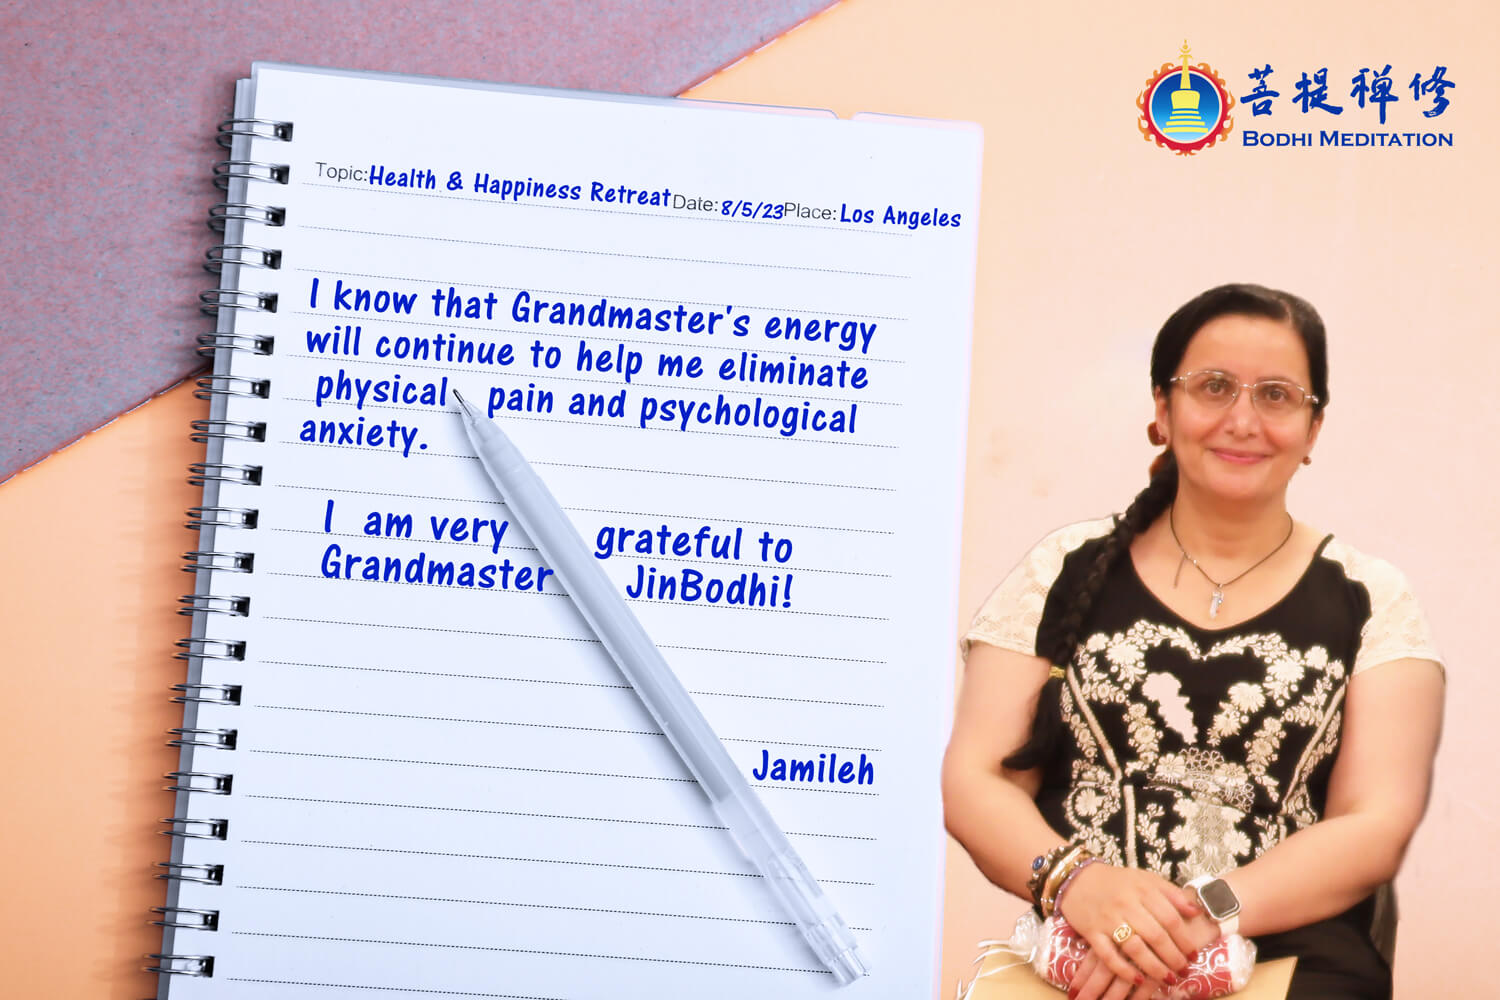 菩提禅修
BODHI MEDITATION
Topic:Health & Happiness Retreat Date: 8/5/23 Place: Los Angeles
I know that Grandmaster's energy
will continue to help me eliminate
physical pain and psychological
anxiety.
I am very grateful to
Grandmaster JinBodhi!
Jamileh